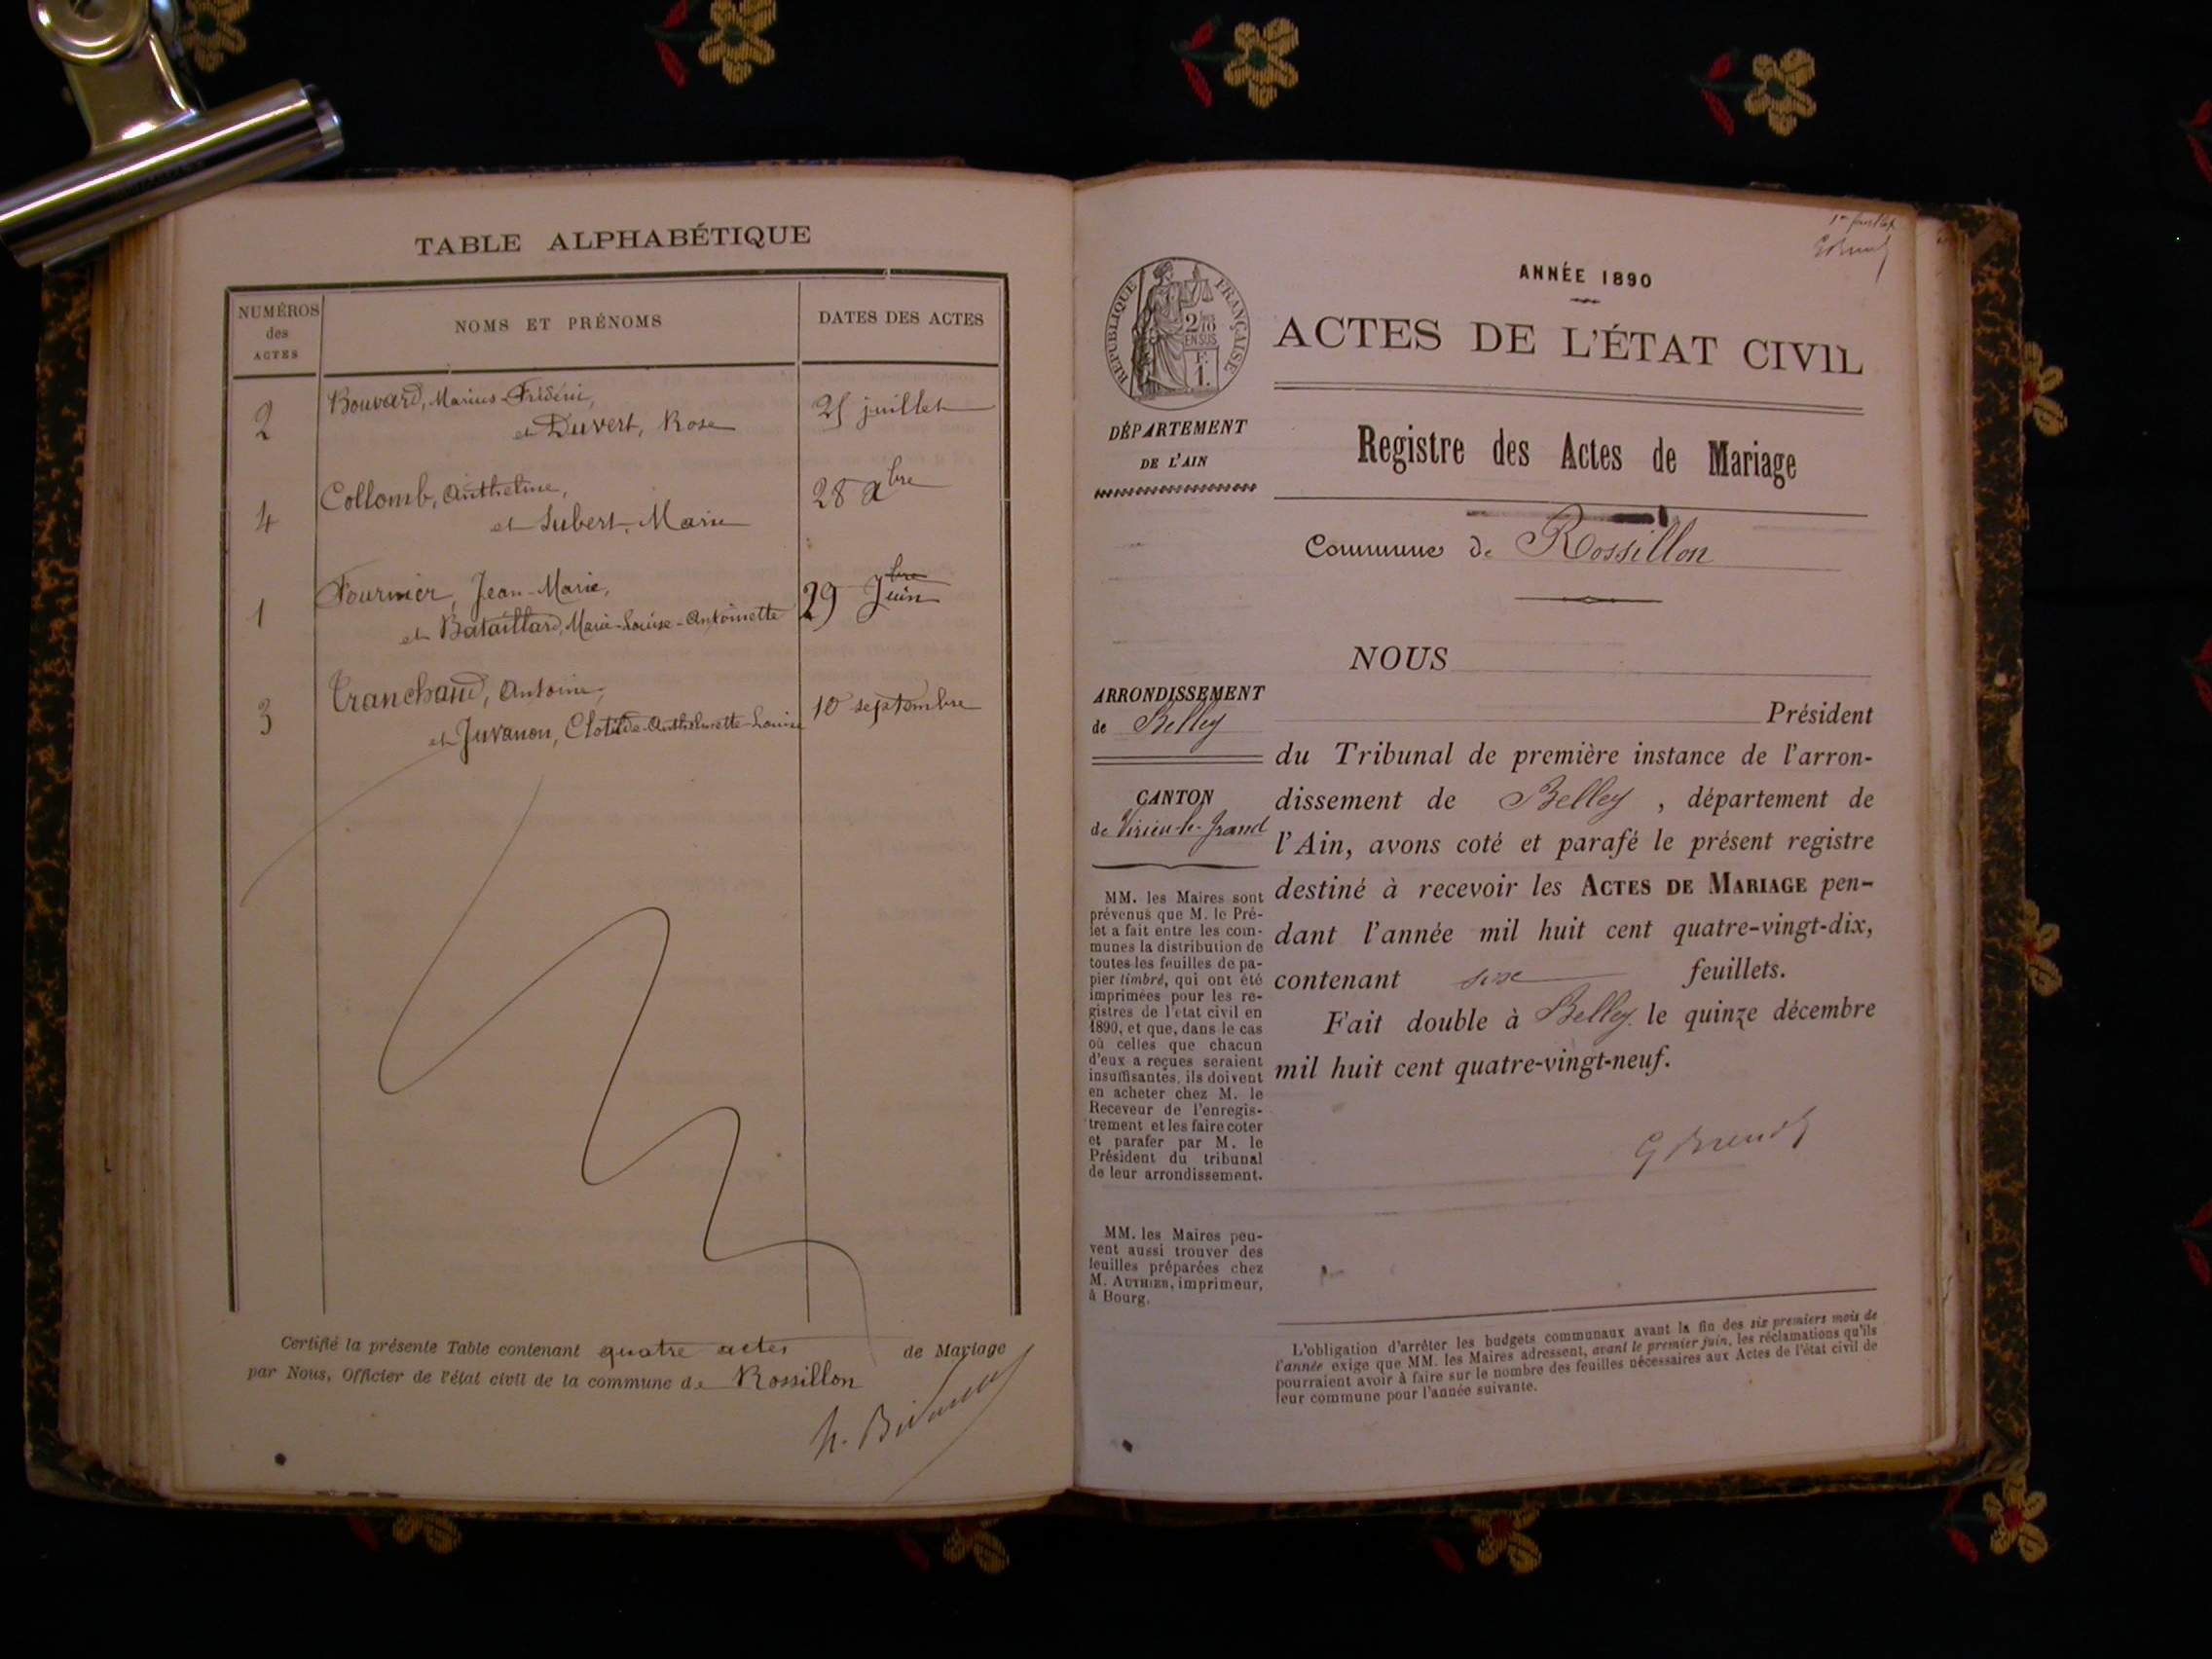 TABLE ALPHABÉTIQUE
NUMÉROS
des
ACTES
NOMS ET PRÉNOMS
DATES DES ACTES
2
Bouvard, Marius-Frédéric,
et Duvert, Rose
25 juillet
4
Collomb, Anthelme,
et Lubert, Marie
28 xbre
1
Fournier, Jean-Marie,
et Bataillard, Marie-Louise-Antoinette
29 Juin
3
Tranchand, Antoine,
et Juvanon, Clotilde-Anthelmette-Louise
10 septembre
Certifié la présente Table contenant quatre actes de Mariage
par Nous, Officier de l'état civil de la commune de Rossillon
1er feuillet
ANNÉE 1890
RÉPUBLIQUE FRANÇAISE
2/10
EN SUS
F.
1.
ACTES DE L'ÉTAT CIVIL
DÉPARTEMENT
DE L'AIN
Registre des Actes de Mariage
Commune de Rossillon
NOUS
ARRONDISSEMENT
de Belley
CANTON
de Virieu-le-Grand
Président
du Tribunal de première instance de l'arron-
dissement de Belley, département de
l'Ain, avons coté et parafé le présent registre
destiné à recevoir les ACTES DE MARIAGE pen-
dant l'année mil huit cent quatre-vingt-dix,
contenant six feuillets.
Fait double à Belley le quinze décembre
mil huit cent quatre-vingt-neuf.
MM. les Maires sont
prévenus que M. le Pré-
fet a fait entre les com-
munes la distribution de
toutes les feuilles de pa-
pier timbré, qui ont été
imprimées pour les re-
gistres de l'état civil en
1890, et que, dans le cas
où celles que chacun
d'eux a reçues seraient
insuffisantes, ils doivent
en acheter chez M. le
Receveur de l'enregis-
trement et les faire coter
et parafer par M. le
Président du tribunal
de leur arrondissement.
MM. les Maires peu-
vent aussi trouver des
feuilles préparées chez
M. AUTHIER, imprimeur,
à Bourg.
L'obligation d'arrêter les budgets communaux avant la fin des six premiers mois de
l'année exige que MM. les Maires adressent, avant le premier juin, les réclamations qu'ils
pourraient avoir à faire sur le nombre des feuilles nécessaires aux Actes de l'état civil de
leur commune pour l'année suivante.